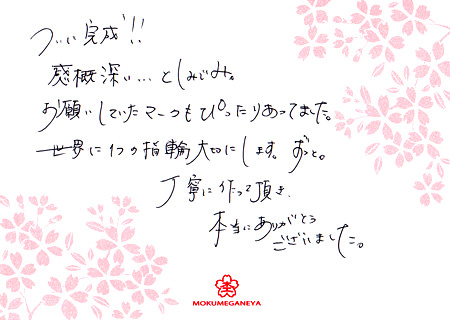 ついに完成!!
感慨深い…としみじみ。
お願いしていたマークもぴったりあってました。
世界に1つの指輪大切にします。ずっと。
丁寧に作って頂き
本当にありがとう
ございました。
MOKUMEGANEYA